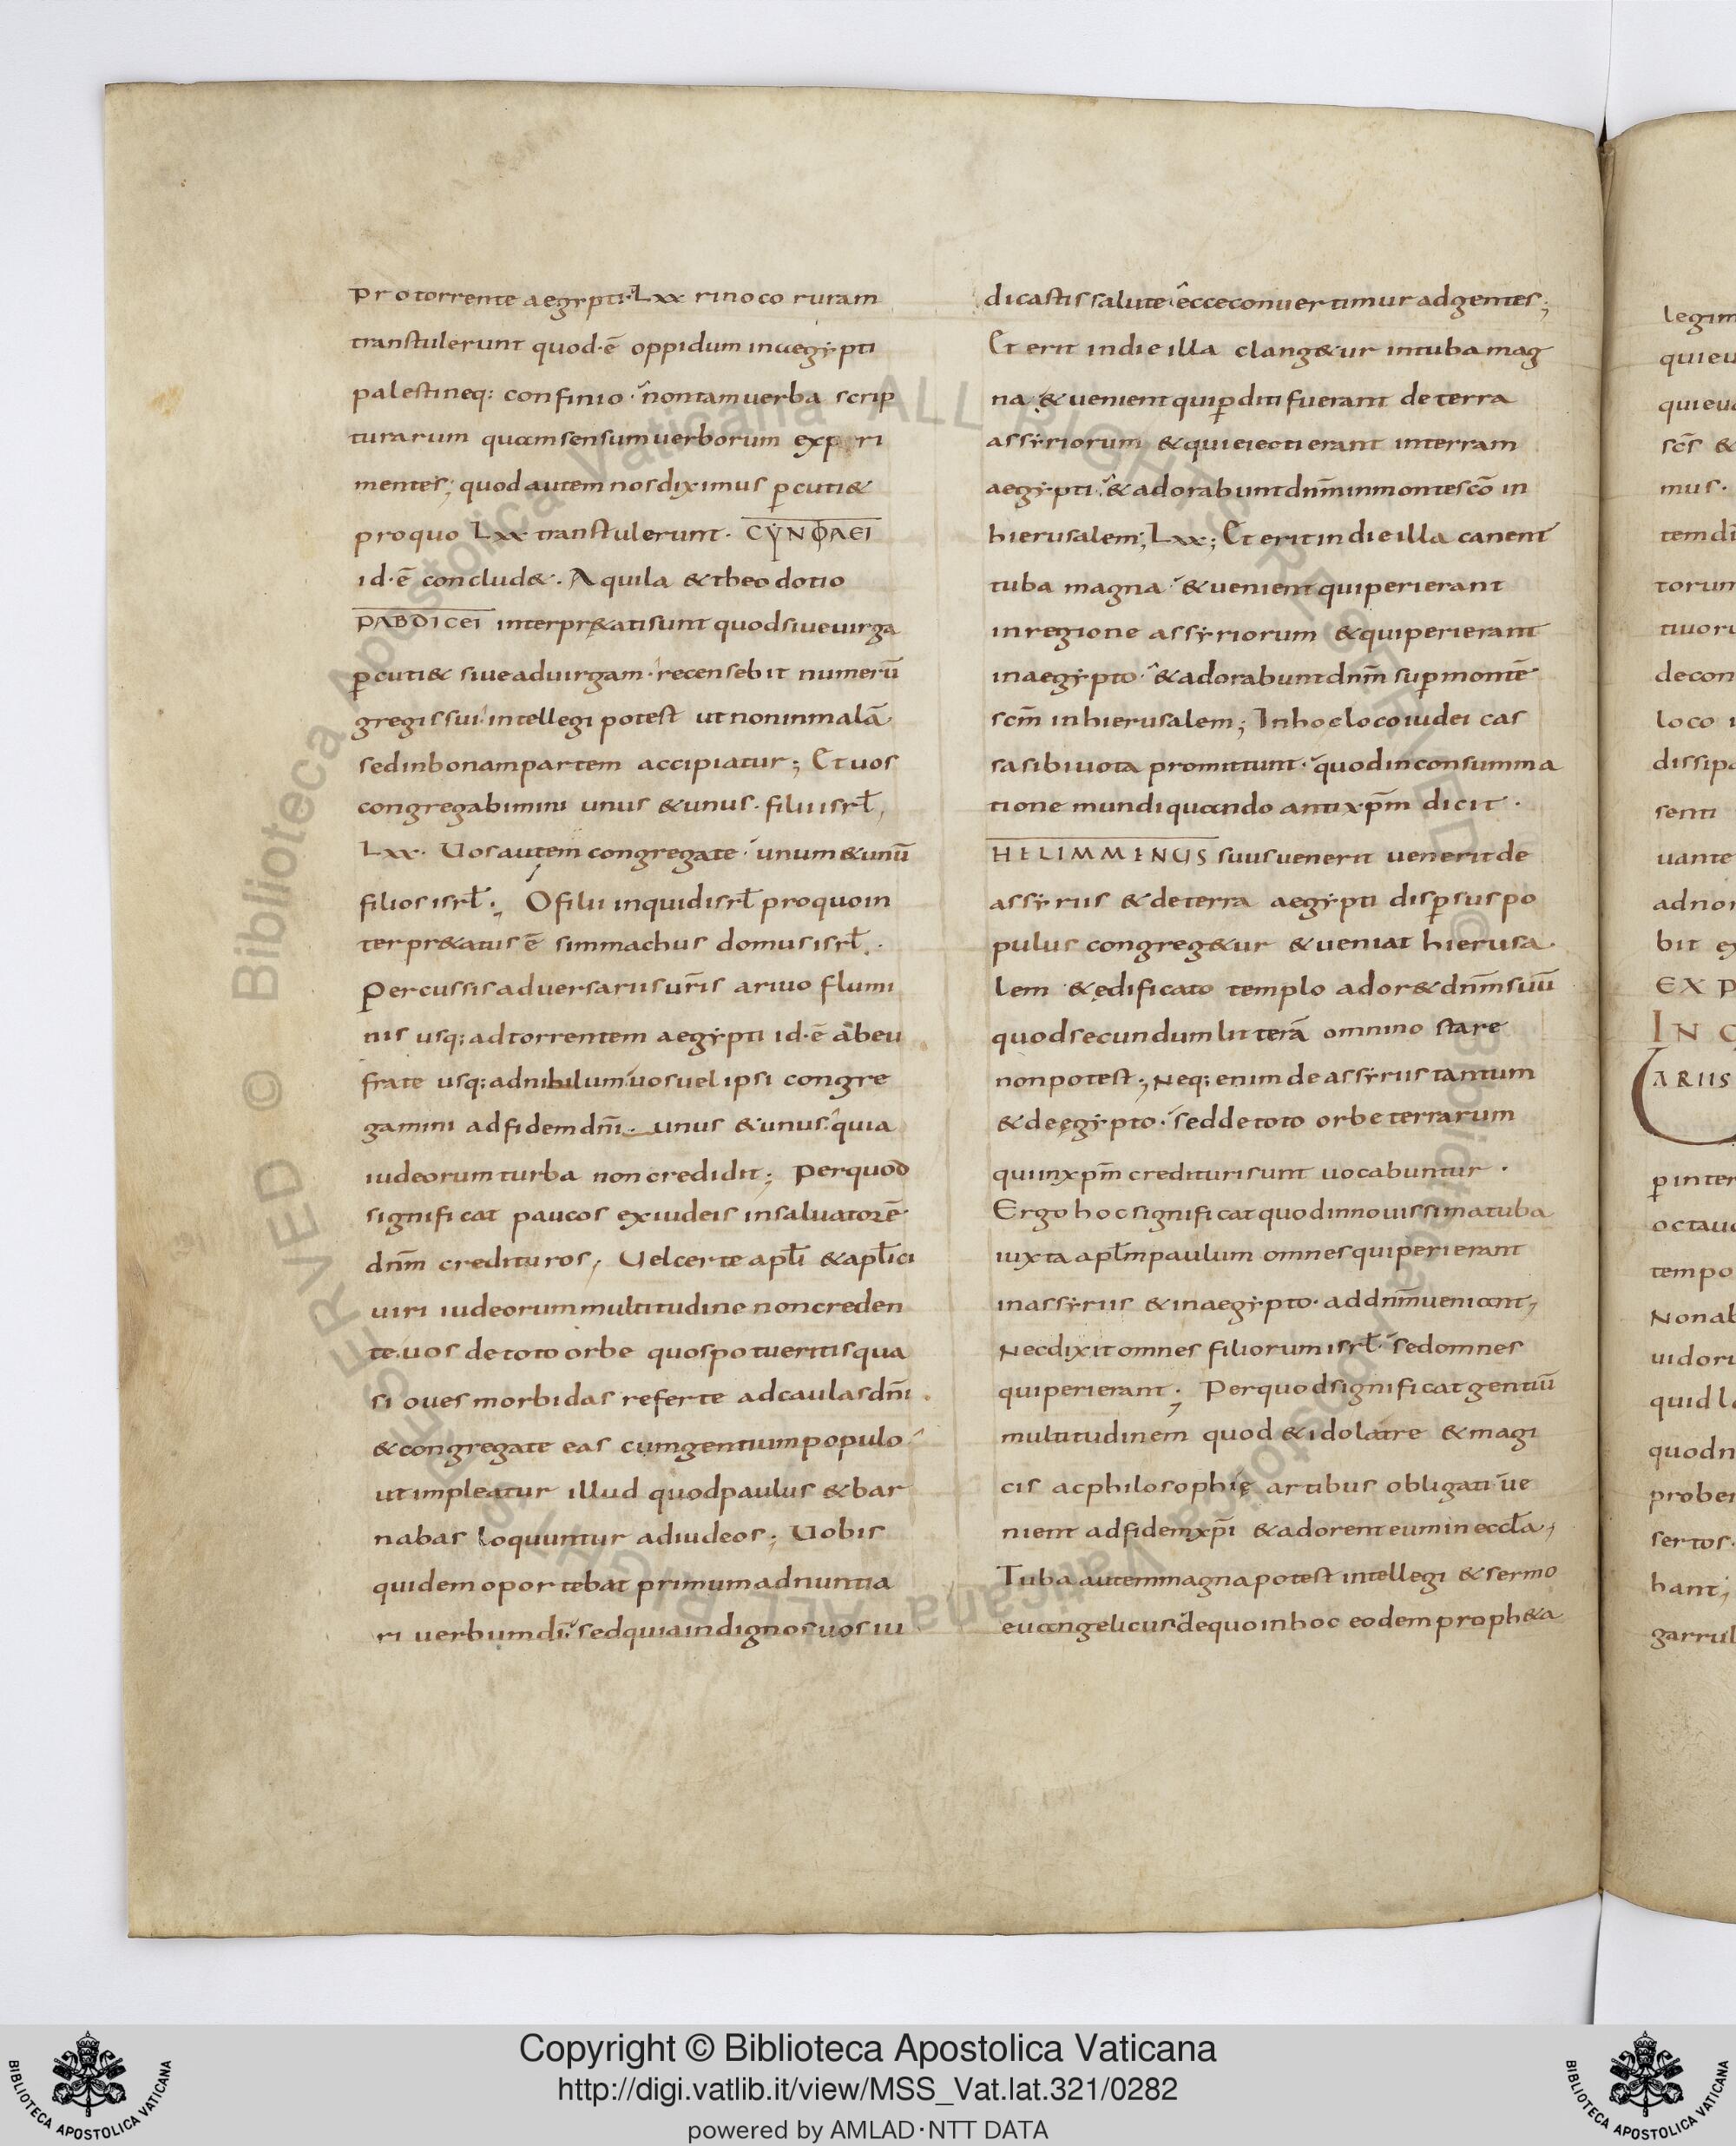 pro torrente aegypti· Lxx rinocoruram
transtulerunt quod·ē oppidum in aegypti
palestineq: confinio· non tam uerba scrip
turarum quam sensum uerborum exp ri
mentes; quod autem nos diximus ꝑcuti&
pro quo Lxx transtulerunt· CYNΦΑΕΙ
id·ē conclud&·. Aquila & theodotio
PABDICEI interpr&ati sunt quod siue uirga
ꝑcuti& siue ad uirgam· recensebit numerū
gregis sui· intellegi potest ut non in malā
sed in bonam partem accipiatur; Et uos
congregabimini unus & unus· filii isrł,
Lxx· Uos autem congregate· unum & unū
filios isrł·, O filii inquid isrł pro quo in
terpr&atus ē simmachus domus isrł.·
Percussis aduersariis ur̄is a riuo flumi
nis usq; ad torrentem aegypti id·ē ab eu
frate usq; ad nihilum· uos uel ipsi congre
gamini ad fidem dn̄i·. unus & unus· quia
iudeorum turba non credidit; per quod
significat paucos ex iudeis in saluatorē
dnm̄ credituros, Uel certe apłi & apłici
uiri iudeorum multitudine non creden
te· uos de toto orbe quos potueritis qua
si oues morbidas referte ad caulas dn̄i·
& congregate eas cum gentium populo·
ut impleatur illud quod paulus & bar
nabas loquuntur ad iudeos; Uobis
quidem oportebat primum adnuntia
ri uerbum dī· sed quia indignos uos iu
dicastis salute· ecce conuertimur ad gentes;
Et erit in die illa clang&ur in tuba mag
na· & uenient qui ꝑditi fuerant de terra
assyriorum & qui eiecti erant in terram
aegypti· & adorabunt dnm̄ in monte scō in
hierusalem; Lxx; Et erit in die illa canent
tuba magna· & uenient qui perierant
in regione assyriorum & qui perierant
in aegypto· & adorabunt dnm̄ suꝑ montē
scm̄ in hierusalem; In hoc loco iudei cas
sa sibi uota promittunt· quod in consumma
tione mundi quando antixpm̄ dicit·
HELIMMENUS suus uenerit uenerit de
assyriis & de terra aegypti disꝑsus po
pulus congreg&ur & ueniat hierusa·
lem & edificato templo ador& dnm̄ suū
quod secundum litterā omnino stare
non potest·, Neq; enim de assyriis tantum
& de ęgypto· sed de toto orbe terrarum
qui in xpm̄ credituri sunt uocabuntur·
Ergo hoc significat quod in nouissima tuba
iuxta apłm paulum omnes qui perierant
in assyriis & in aegypto· ad dnm̄ ueniant,
Nec dixit omnes filiorum isrł· sed omnes
qui perierant·, Per quod significat gentiū
multitudinem quod & idolatre & magi
cis ac philosophię artibus obligati ue
nient ad fidem xpī & adorent eum in eccła,
Tuba autem magna potest intellegi & sermo
euangelicus· de quo in hoc eodem proph&a
legim
quieu
quieua
scs̄ &
mus·
tem di
torum
tiuoru
decon
loco i
dissipa
senti
uante
adnon
bit ex
EX P
IN
ARIIS
ꝑinter
octauo
tempo
Nonab
uidori
quid l
quodn
prober
sertos·
hant;
garrul
Copyright © Biblioteca Apostolica Vaticana
http://digi.vatlib.it/view/MSS_Vat.lat.321/0282
powered by AMLAD·NTT DATA
BIBLIOTECA APOSTOLICA VATICANA
BIBLIOTECA APOSTOLICA VATICANA
Biblioteca Apostolica Vaticana ALL RIGHTS RESERVED ©
Biblioteca Apostolica Vaticana ALL RIGHTS RESERVED ©